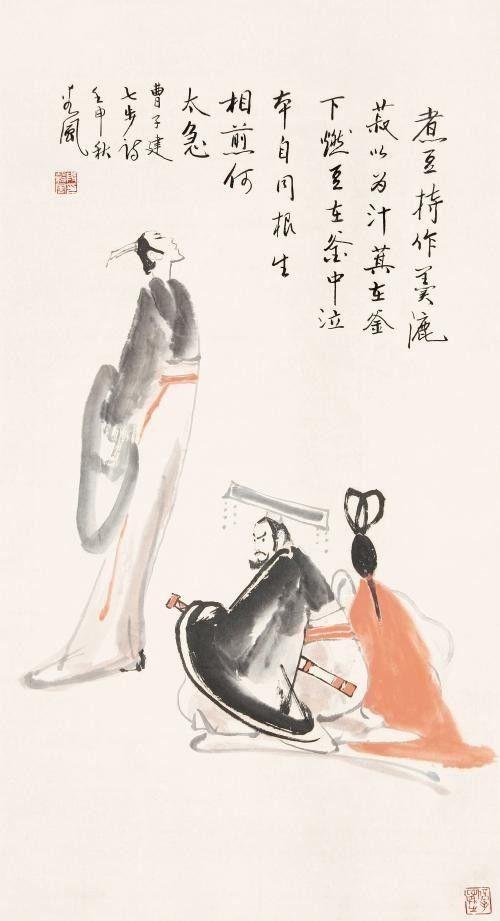 煮豆持作羹漉
菽以为汁萁在釜
下燃豆在釜中泣
本自同根生
相煎何
太急
曹子建
七步诗
壬申秋
风